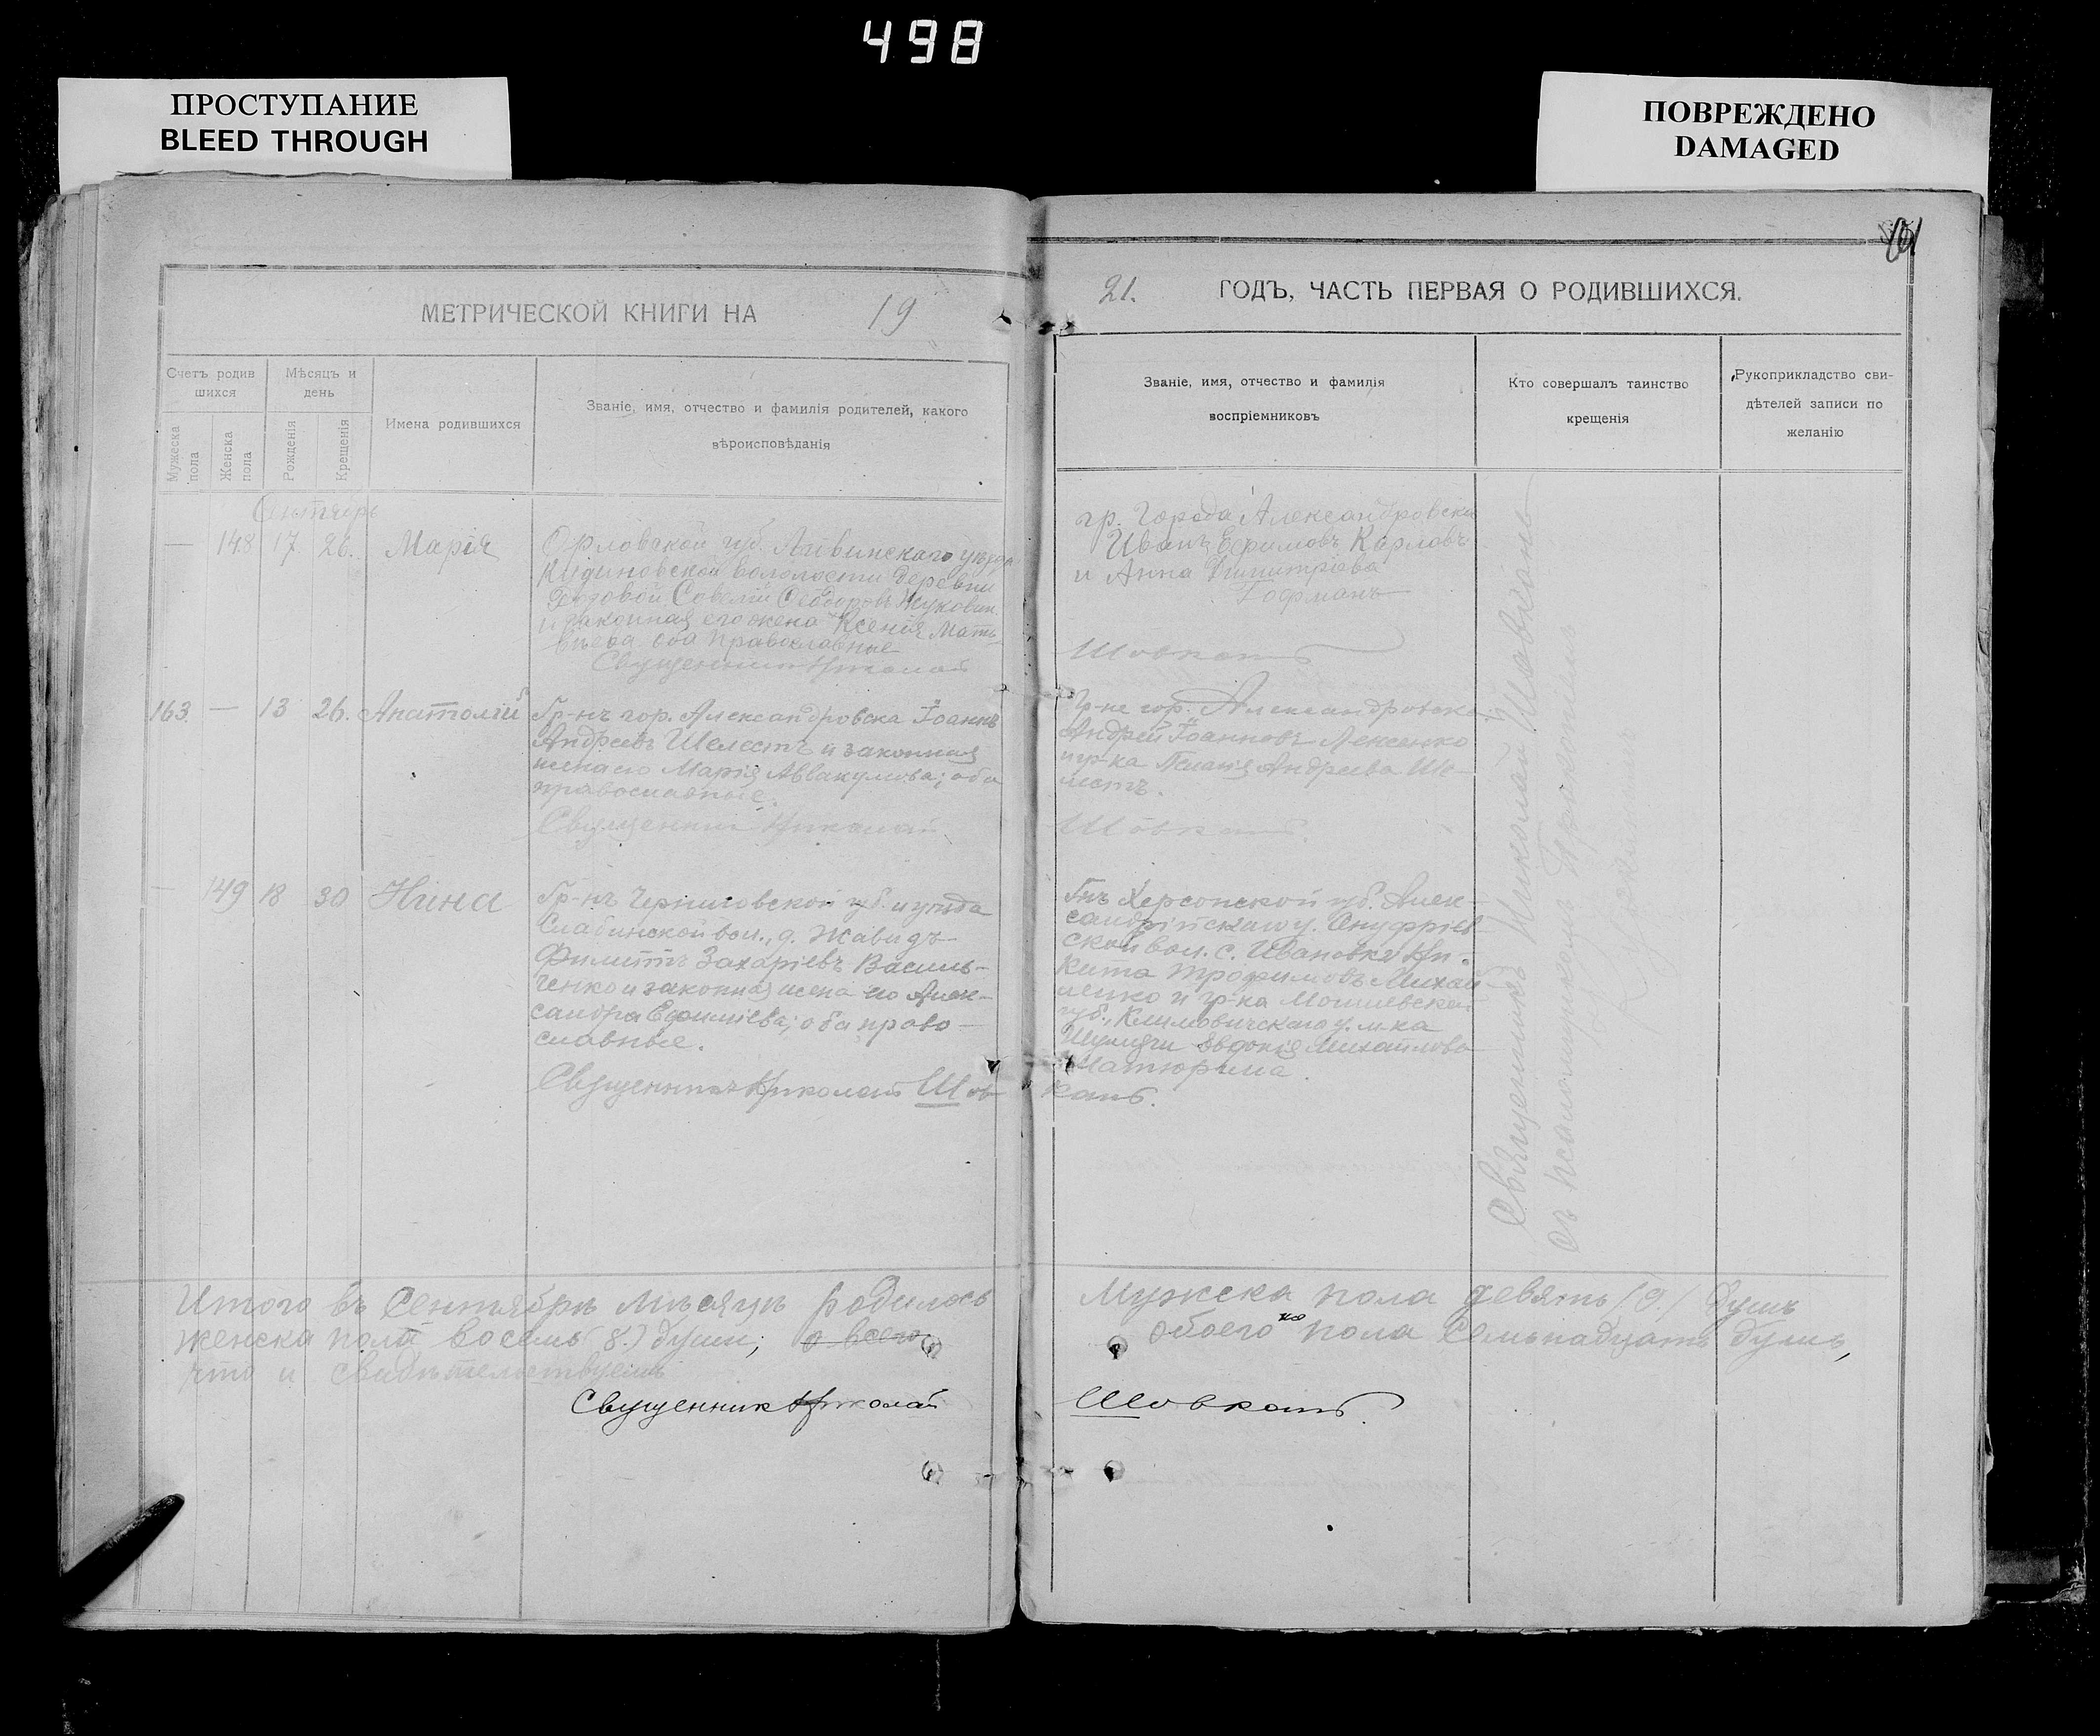 498
ПРОСТУПАНИЕ
BLEED THROUGH
ПОВРЕЖДЕНО
DAMAGED
МЕТРИЧЕСКОЙ КНИГИ НА 19
21. ГОДЪ, ЧАСТЬ ПЕРВАЯ О РОДИВШИХСЯ.
Счетъ родив
шихся
Мужеска
пола
Женска
пола
Мѣсяцъ и
день
Рожденія
Крещенія
Имена родившихся
Званіе, имя, отчество и фамилія родителей, какого
вѣроисповѣданія
Званіе, имя, отчество и фамилія
воспріемниковъ
Кто совершалъ таинство
крещенія
Рукоприкладство сви-
дѣтелей записи по
желанію
Сентябрь
— 148 17 26. Марія
Орловской губ. Ливинскаго уѣзда
волости деревни
Ѳеодоровъ
и законная его жена Ксенія Мат-
вѣева оба православные
Священникъ Николай
гр. города Александровска
Иванъ Ефимовъ Карловъ
и Анна Димитріева
Гофманъ
Шовкань
163. — 13 26. Анатолій
Гр-нъ гор. Александровска Іоаннъ
Андреевъ Шелестъ и законная
жена его Марія Аввакумова; оба
православные.
Священникъ Николай
Гр-не гор. Александровска
Андрей Іоанновъ Лексенко
и гр-ка Андреева Ше-
лестъ.
Шовкань.
— 149 18 30 Нина
Гр-нъ Черниговской губ. и уѣзда
Слабинской вол., д. Жавидъ
Филиппъ Захаріевъ Василь-
ченко и законная жена его Алек-
сандра; оба право-
славные.
Священникъ Николай Шов-
Гр-нъ Херсонской губ. Алек-
сандрійскаго у. Онуфріев-
ской вол. с. Ивановка Ни-
кита Трофимовъ Михай
ленко и гр-ка Могилевской
губ., Климовичскаго у. м-ка
Евдокія Михайлова
Матюрина.
кань.
Священникъ Николай Шовкань
съ псаломщикомъ
Итого въ Сентябрѣ мѣсяцѣ родилось
Мужска пола девять (9.) душъ
женска пола восемь (8.) душъ; а всего
обоего пола семьнадцать душъ,
что и свидѣтельствуемъ
Священник Николай
Шовкань.